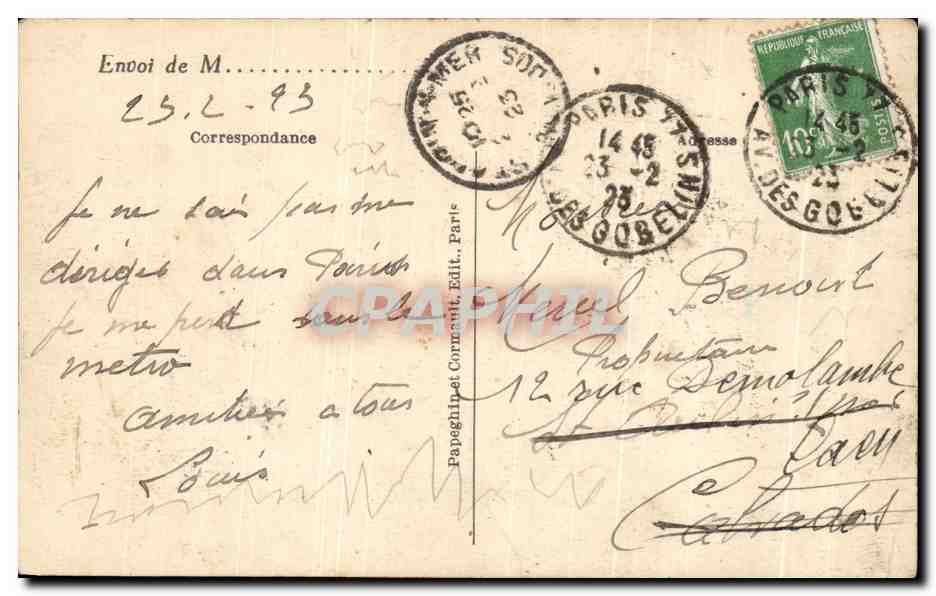 Envoi de M..................
23.2-23
Correspondance
Je ne sais pas me
diriger dans Paris
Je me perd sans le
metro
amitiés a tous
Louis
Papeghin et Cormault, Edit., Paris
Adresse
REPUBLIQUE FRANÇAISE
10c
POSTES
PARIS XV
14 45
23 -2
23
AV. DES GOBELINS
PARIS XV
14 45
23 -2
23
AV. DES GOBELINS
Marcel Benoist
Propriétaire
12 rue Demolombe
St Aubin s/mer
Caen
Calvados
CPAPHIL